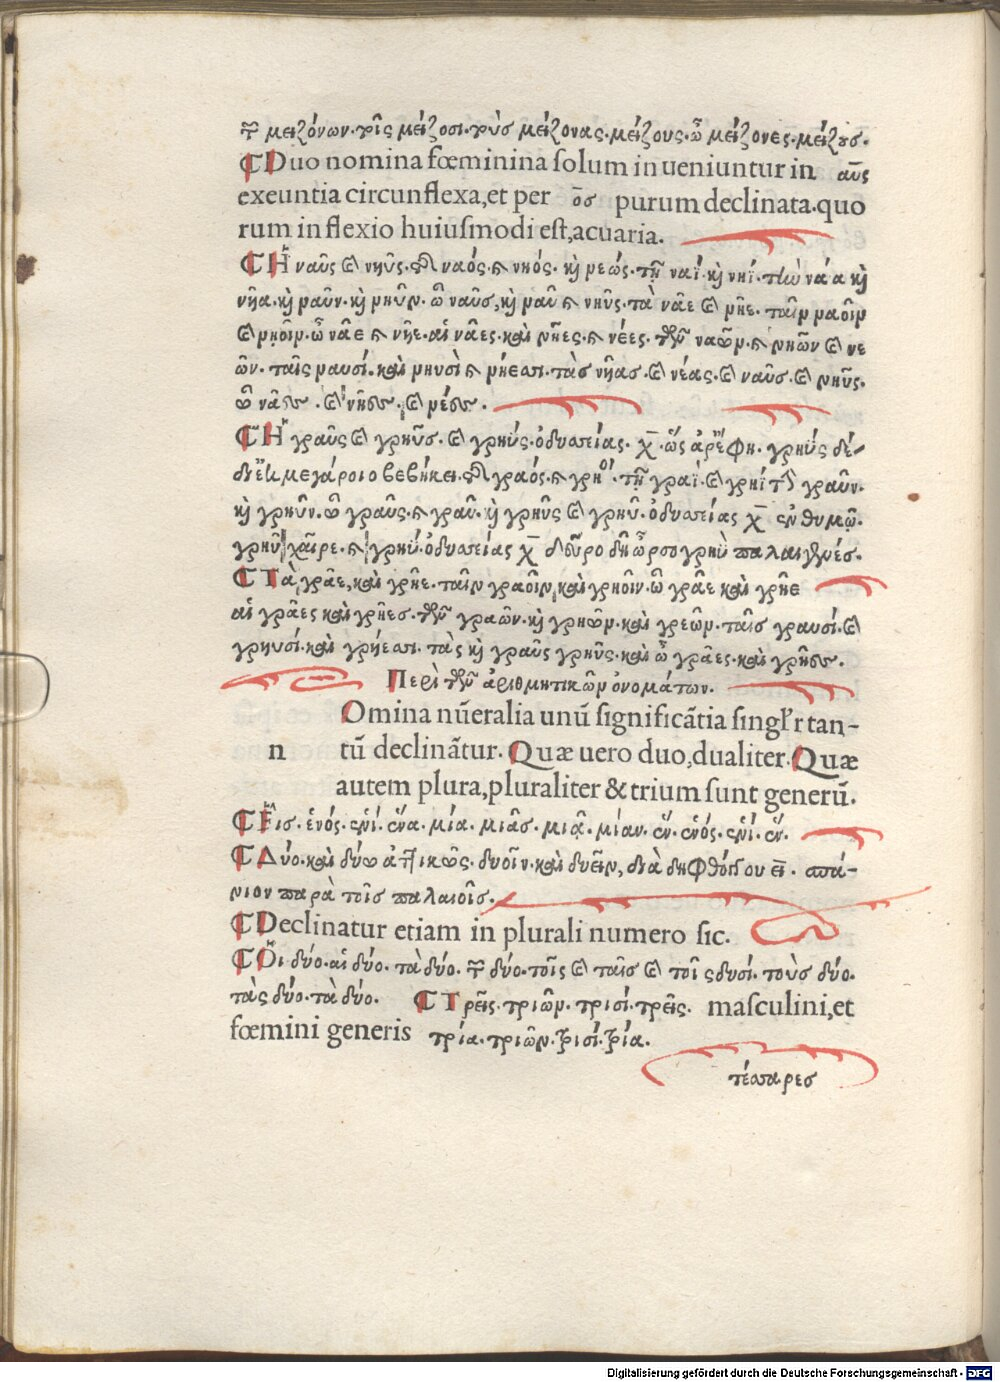 τῶν μειζόνων·τοῖς μείζοσι·τοὺσ μείζονας·μείζους·ὦ μείζονες·μείζους·
¶Duo nomina fœminina ſolum inueniuntur in αῦς
exeuntia circunflexa,et per ōσ purum declinata·quo
rum inflexio huiuſmodi eſt,acuaria.
¶Ἡ ναῦς καὶ νηῦς·τῆς ναός·καὶ νηός·καὶ νεώς·τῇ ναΐ·καὶ νηΐ·τὴν νάα καὶ
νῆα·καὶ ναῦν·καὶ νηῦν·ὦ ναῦσ,καὶ ναῦ καὶ νηῦς·τὰ νᾶε καὶ νῆε·ταῖν ναοῖν
καὶ νηοῖν·ὦ νᾶε καὶ νῆε·αἱ νᾶες·καὶ νῆες·καὶ νέες·τῶν ναῶν·καὶ νηῶν καὶ νε
ῶν·ταῖς ναυσί·καὶ νηυσὶ καὶ νήεσσι·τὰσ νῆασ·καὶ νέας·καὶ ναῦσ·καὶ νηῦς·
ὦ νᾶες·καὶ νῆες·καὶ νέες·
¶Ἡ γραῦς καὶ γρηῦσ·καὶ γρηύς·ὀδυσσείας·χ̅·ὥς ἄρ ἔφη·γρηῢς δέ
διὲκ μεγάροιο βεβήκει·τῆς γραός·καὶ γρηός·τῇ γραΐ·καὶ γρηΐ τὴν γραῦν·
καὶ γρηῦν·ὦ γραῦς·καὶ γραῦ·καὶ γρηῦς καὶ γρηῦ·ὀδυσσείας χ̅ ἐν θυμῷ·
γρηῦ χαῖρε·καὶ γρηΰ·ὀδυσσείας χ̅ δεῦρο δὴ ὦρσο γρηῢ παλαιγενέσ·
¶Τὰ γρᾶε,καὶ γρῆε·ταῖν γραοῖν,καὶ γρηοῖν·ὦ γρᾶε καὶ γρῆε
αἱ γρᾶες καὶ γρῆεσ·τῶν γραῶν·καὶ γρηῶν·καὶ γρεῶν·ταῖσ γραυσί·καὶ
γρηυσί·καὶ γρήεσσι·τὰς καὶ γραῦς γρηῦς·καὶ ὦ γρᾶες·καὶ γρῆες·
Περὶ τῶν ἀριθμητικῶν ὀνομάτων·
Omina nūeralia unū ſignificātia ſingl'r tan-
n tū declinātur·Quæ uero duo,dualiter·Quæ
autem plura,pluraliter & trium ſunt generū.
¶Εἷσ·ἑνός·ἑνί·ἕνα·μία·μιᾶσ·μιᾷ·μίαν·ἕν·ἑνός·ἑνί·ἕν·
¶Δύο·καὶ δύω ἀττικῶς·δυοῖν·καὶ δυεῖν, διὰ διφθόγγου ει̅·σπά-
νιον παρὰ τοῖσ παλαιοῖς·
¶Declinatur etiam in plurali numero ſic.
¶Οἱ δύο·αἱ δύο·τὰ δύο·τῶν δύο·τοῖς καὶ ταῖσ καὶ τοῖς δυσί·τοὺσ δύο·
τὰς δύο·τὰ δύο· ¶Τρεῖς·τριῶν·τρισί·τρεῖς· maſculini,et
fœmini generis τρία·τριῶν·τρισί·τρία·
τέσσαρεσ
Digitalisierung gefördert durch die Deutsche Forschungsgemeinschaft - DFG